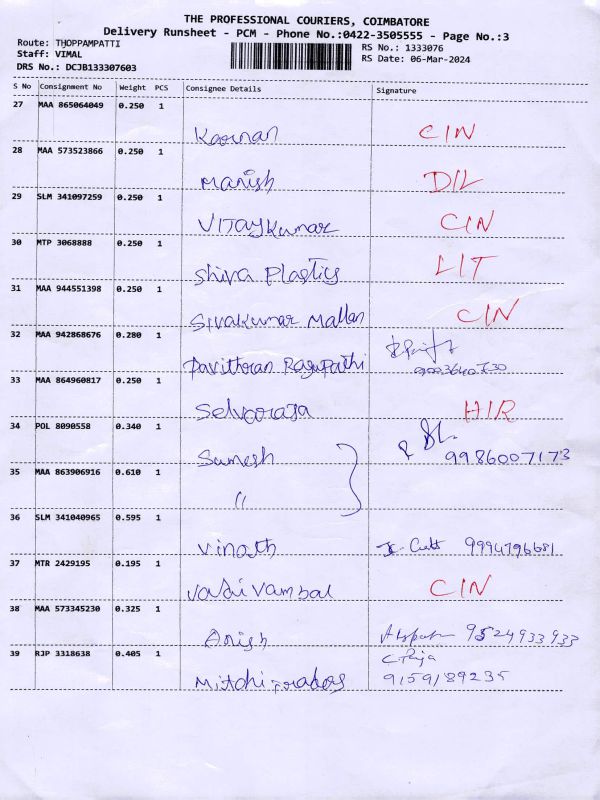 THE PROFESSIONAL COURIERS, COIMBATORE
Delivery Runsheet - PCM - Phone No.:0422-3505555 - Page No.:3
Route: THOPPAMPATTI
Staff: VIMAL
DRS No.: DCJB133307603
RS No.: 1333076
RS Date: 06-Mar-2024
S No Consignment No Weight PCS Consignee Details Signature
27 MAA 865064049 0.250 1
CIN
28 MAA 573523866 0.250 1
Manish D/L
29 SLM 341097259 0.250 1
VIJAYKumar CIN
30 MTP 3068888 0.250 1
Shiva Plastics LIT
31 MAA 944551398 0.250 1
Sivakumar Mallan CIN
32 MAA 942868676 0.280 1
Pavithran Ragupathi
33 MAA 864960817 0.250 1
Selvaraja H/R
34 POL 8090558 0.340 1
Sumesh 9986007173
35 MAA 863906916 0.610 1
"
36 SLM 341040965 0.595 1
Vinoth 9994796681
37 MTR 2429195 0.195 1
CIN
38 MAA 573345230 0.325 1
Anish 9524933933
39 RJP 3318638 0.405 1
9159189235